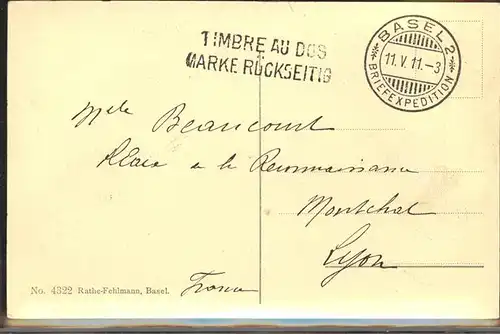 TIMBRE AU DOS
MARKE RÜCKSEITIG
BASEL 2
11.V.11.-3
BRIEFEXPEDITION
Mlle Beaucourt
Place de la Reconnaissance
Montchat
Lyon
France
No. 4322 Rathe-Fehlmann, Basel.